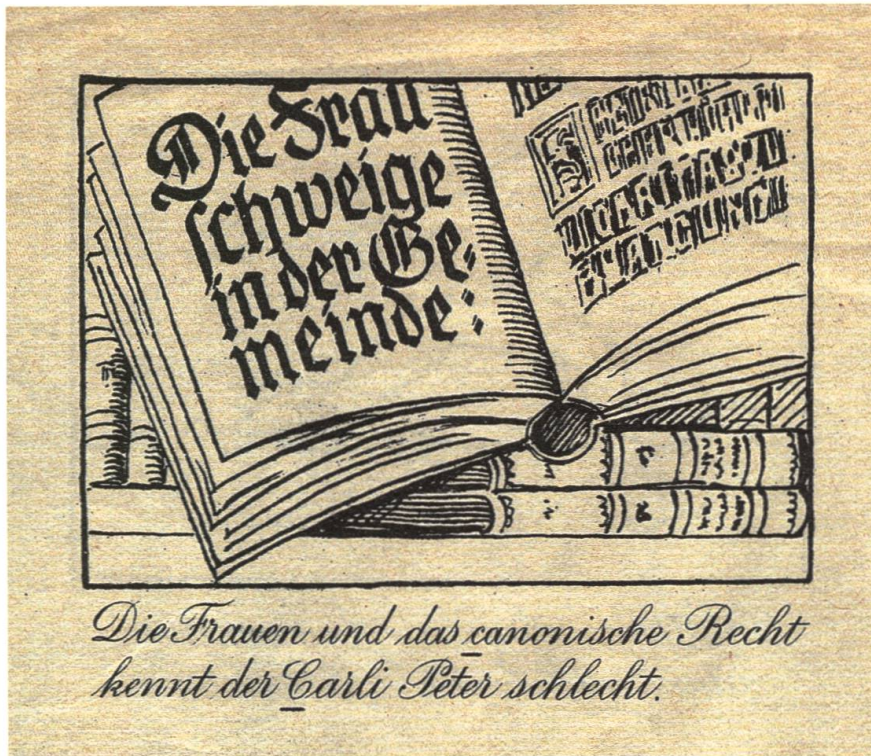 Die Frau
schweige
in der Ge-
meinde:
Die Frauen und das canonische Recht
kennt der Carli Peter schlecht.